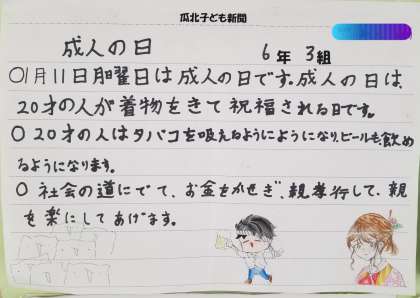 瓜北子ども新聞
成人の日
6年 3組
〇1月11日月曜日は成人の日です。成人の日は、
20才の人が着物をきて祝福される日です。
〇20才の人はタバコを吸えるようにようになり、ビールも、飲め
るようになります。
〇社会の道にでて、お金をかせぎ、親孝行して、親
を楽にしてあげます。